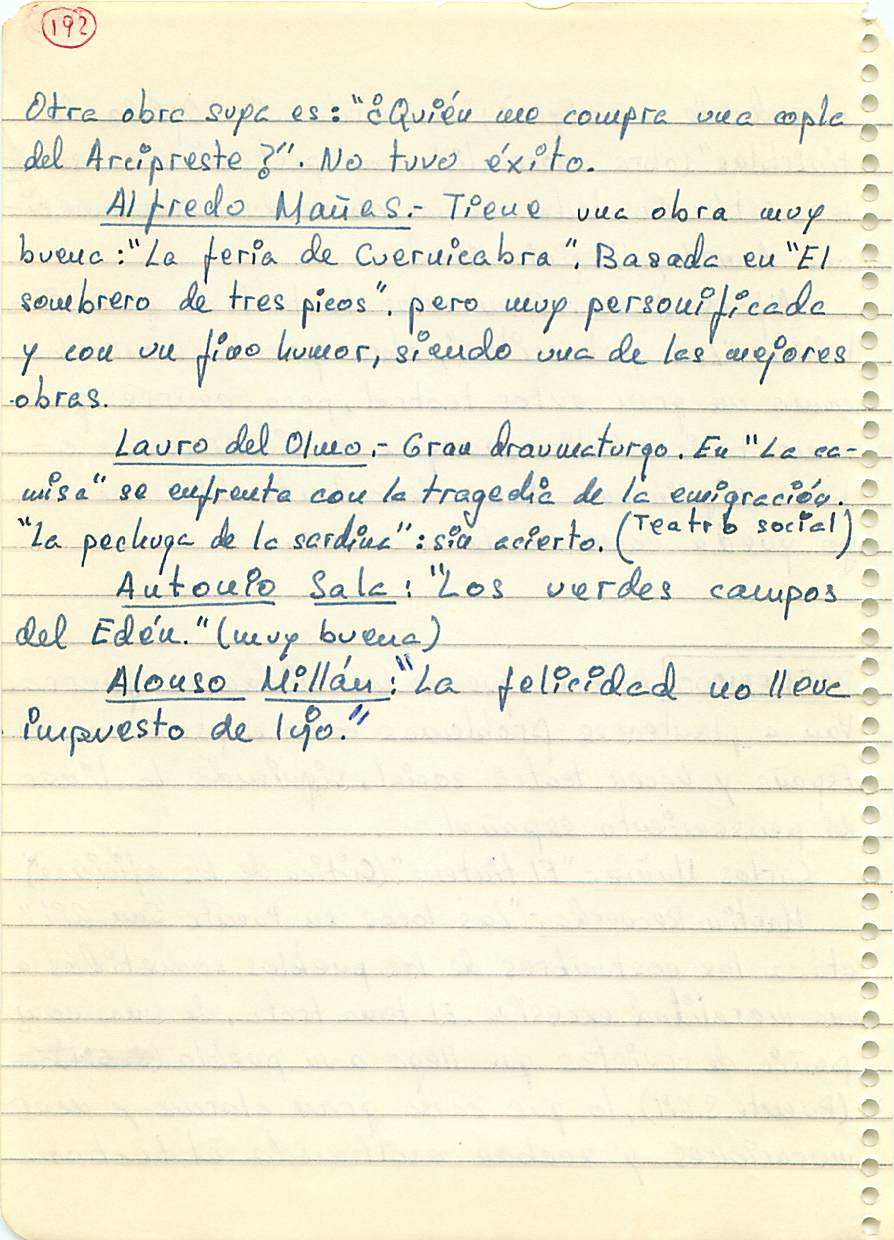 192
Otra obra supa es: "¿Quién me compra una copla
del Arcipreste?". No tuvo éxito.
Alfredo Mañas.- Tiene una obra muy
buena: "La feria de Cuernicabra". Basada en "El
sombrero de tres picos". pero muy personificada
y con un fino humor, siendo una de las mejores
obras.
Lauro del Olmo.- Gran dramaturgo. En "La ca-
misa" se enfrenta con la tragedia de la emigración.
"La pechuga de la sardina": sin acierto. (Teatro social)
Antonio Sala: "Los verdes campos
del Edén." (muy buena)
Alonso Millán: "La felicidad no lleva
impuesto de lujo."